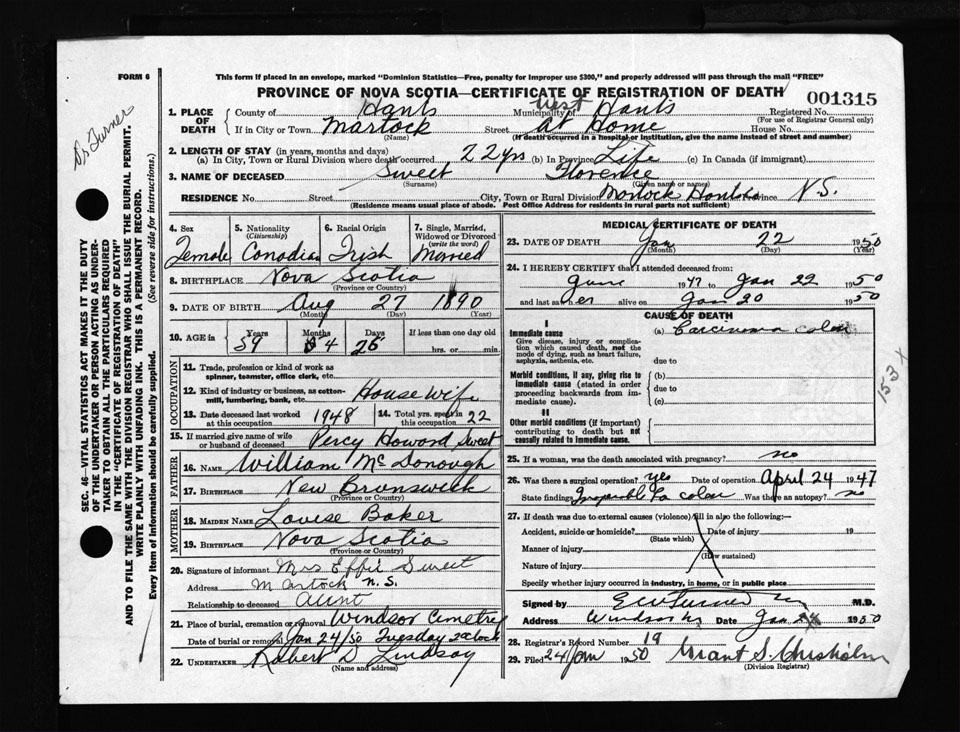 FORM 6
This form if placed in an envelope, marked "Dominion Statistics—Free, penalty for improper use $300," and properly addressed will pass through the mail "FREE"
PROVINCE OF NOVA SCOTIA—CERTIFICATE OF REGISTRATION OF DEATH
001315
Dr Turner
SEC. 46—VITAL STATISTICS ACT MAKES IT THE DUTY
OF THE UNDERTAKER OR PERSON ACTING AS UNDER-
TAKER TO OBTAIN ALL THE PARTICULARS REQUIRED
IN THE "CERTIFICATE OF REGISTRATION OF DEATH"
AND TO FILE THE SAME WITH THE DIVISION REGISTRAR WHO SHALL ISSUE THE BURIAL PERMIT.
WRITE PLAINLY WITH UNFADING INK. THIS IS A PERMANENT RECORD.
Every item of information should be carefully supplied. (See reverse side for instructions.)
1. PLACE OF DEATH
County of Hants Municipality of West Hants Registered No.
(For use of Registrar General only)
If in City or Town Martock Street At Home House No.
(Name) (If death occurred in a hospital or institution, give the name instead of street and number)
2. LENGTH OF STAY (in years, months and days)
(a) In City, Town or Rural Division where death occurred 22 yrs (b) In Province Life (c) In Canada (if immigrant)
3. NAME OF DECEASED Sweet Florence
(Surname) (Given name or names)
RESIDENCE No. Street City, Town or Rural Division Martock Hants Province N.S.
(Residence means usual place of abode. Post Office Address for residents in rural parts not sufficient)
4. Sex Female
5. Nationality (Citizenship) Canadian
6. Racial Origin Irish
7. Single, Married, Widowed or Divorced (write the word) Married
8. BIRTHPLACE Nova Scotia
(Province or Country)
9. DATE OF BIRTH Aug 27 1890
(Month) (Day) (Year)
10. AGE in Years 59 Months 4 Days 26 If less than one day old
hrs. or min.
OCCUPATION
11. Trade, profession or kind of work as
spinner, teamster, office clerk, etc.
12. Kind of industry or business, as cotton-
mill, lumbering, bank, etc. House Wife
13. Date deceased last worked at this occupation 1948
14. Total yrs. spent in 22
15. If married give name of wife or husband of deceased Percy Howard Sweet
FATHER
16. NAME William McDonough
17. BIRTHPLACE New Brunswick
(Province or Country)
MOTHER
18. MAIDEN NAME Louise Baker
19. BIRTHPLACE Nova Scotia
(Province or Country)
20. Signature of informant Mrs Effie Sweet
Address Martock N.S.
Relationship to deceased Aunt
21. Place of burial, cremation or removal Windsor Cimetry
Date of burial or removal Jan 24/50 Tuesday 2 oclock
22. UNDERTAKER Robert D Lindsay
(Name and address)
MEDICAL CERTIFICATE OF DEATH
23. DATE OF DEATH Jan 22 1950
(Month) (Day) (Year)
24. I HEREBY CERTIFY that I attended deceased from:
June 1947 to Jan 22 1950
and last saw her alive on Jan 20 1950
CAUSE OF DEATH
I
Immediate cause (a) Carcinoma colon
Give disease, injury or complica-
tion which caused death, not the
mode of dying, such as heart failure,
asphyxia, asthenia, etc. due to
Morbid conditions, if any, giving rise to (b)
immediate cause (stated in order due to
proceeding backwards from im-
mediate cause). (c)
II
Other morbid conditions (if important)
contributing to death but not
causally related to immediate cause.
153 X
25. If a woman, was the death associated with pregnancy? no
26. Was there a surgical operation? yes Date of operation April 24 1947
State findings Inoperable Ca colon Was there an autopsy? no
27. If death was due to external causes (violence) fill in also the following:—
Accident, suicide or homicide? Date of injury 19
(State which)
Manner of injury
(How sustained)
Nature of injury
Specify whether injury occurred in industry, in home, or in public place
Signed by E W Turner M.D.
Address Windsor NS Date Jan 24 1950
28. Registrar's Record Number 19
29. Filed 24 Jan 1950 Grant S. Chisholm
(Division Registrar)